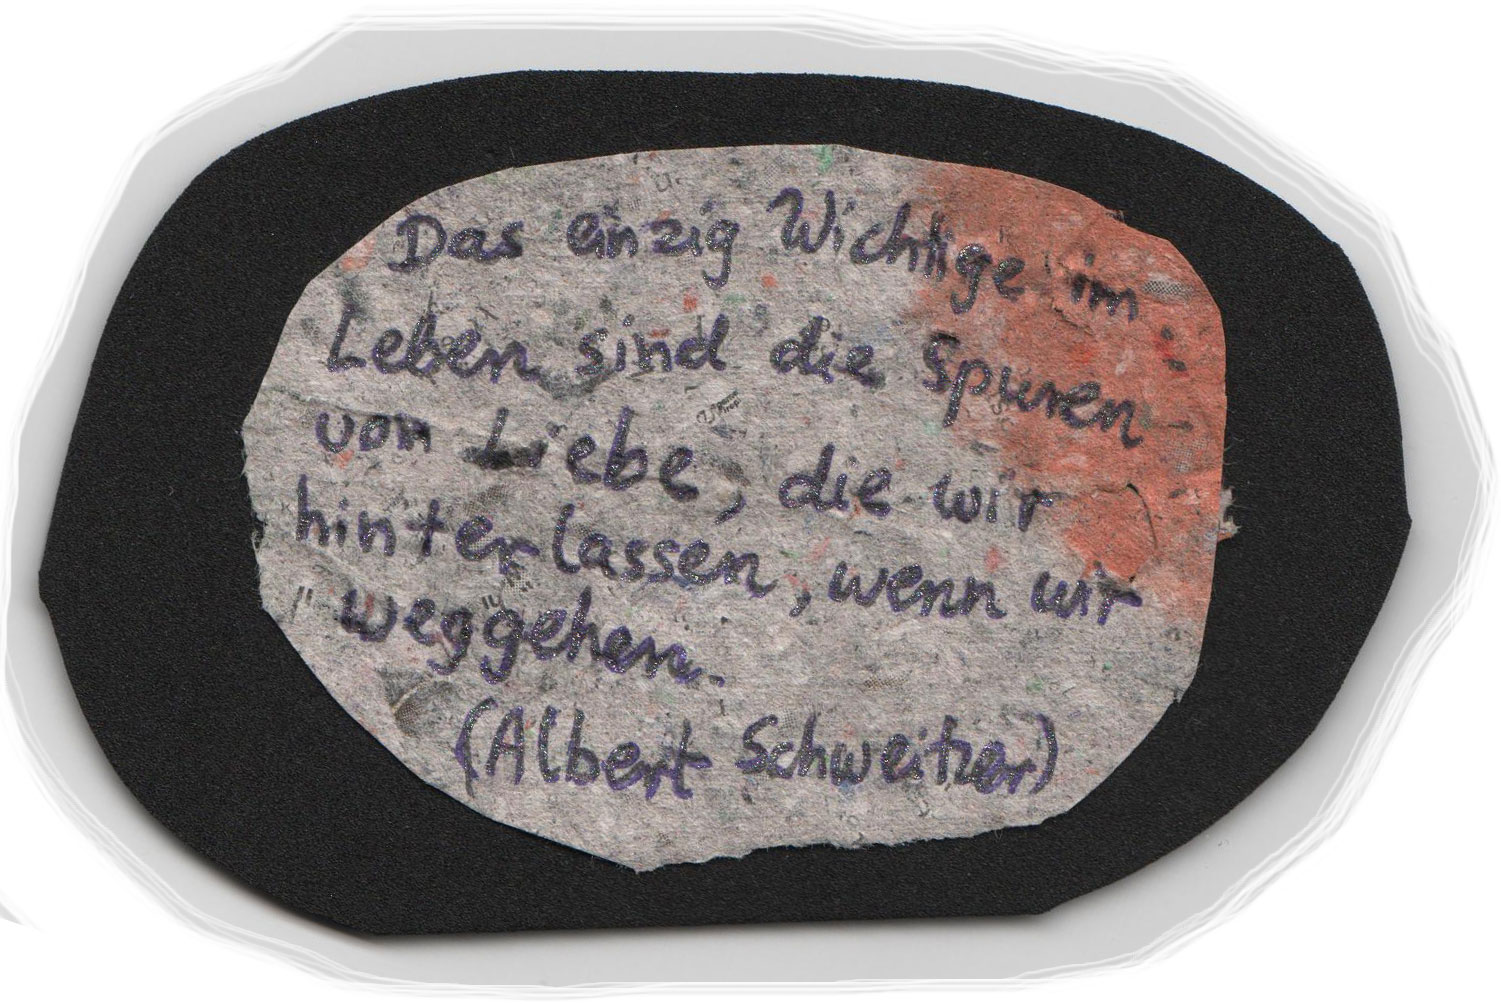 Das einzig Wichtige im
Leben sind die Spuren
von Liebe, die wir
hinterlassen, wenn wir
weggehen.
(Albert Schweitzer)